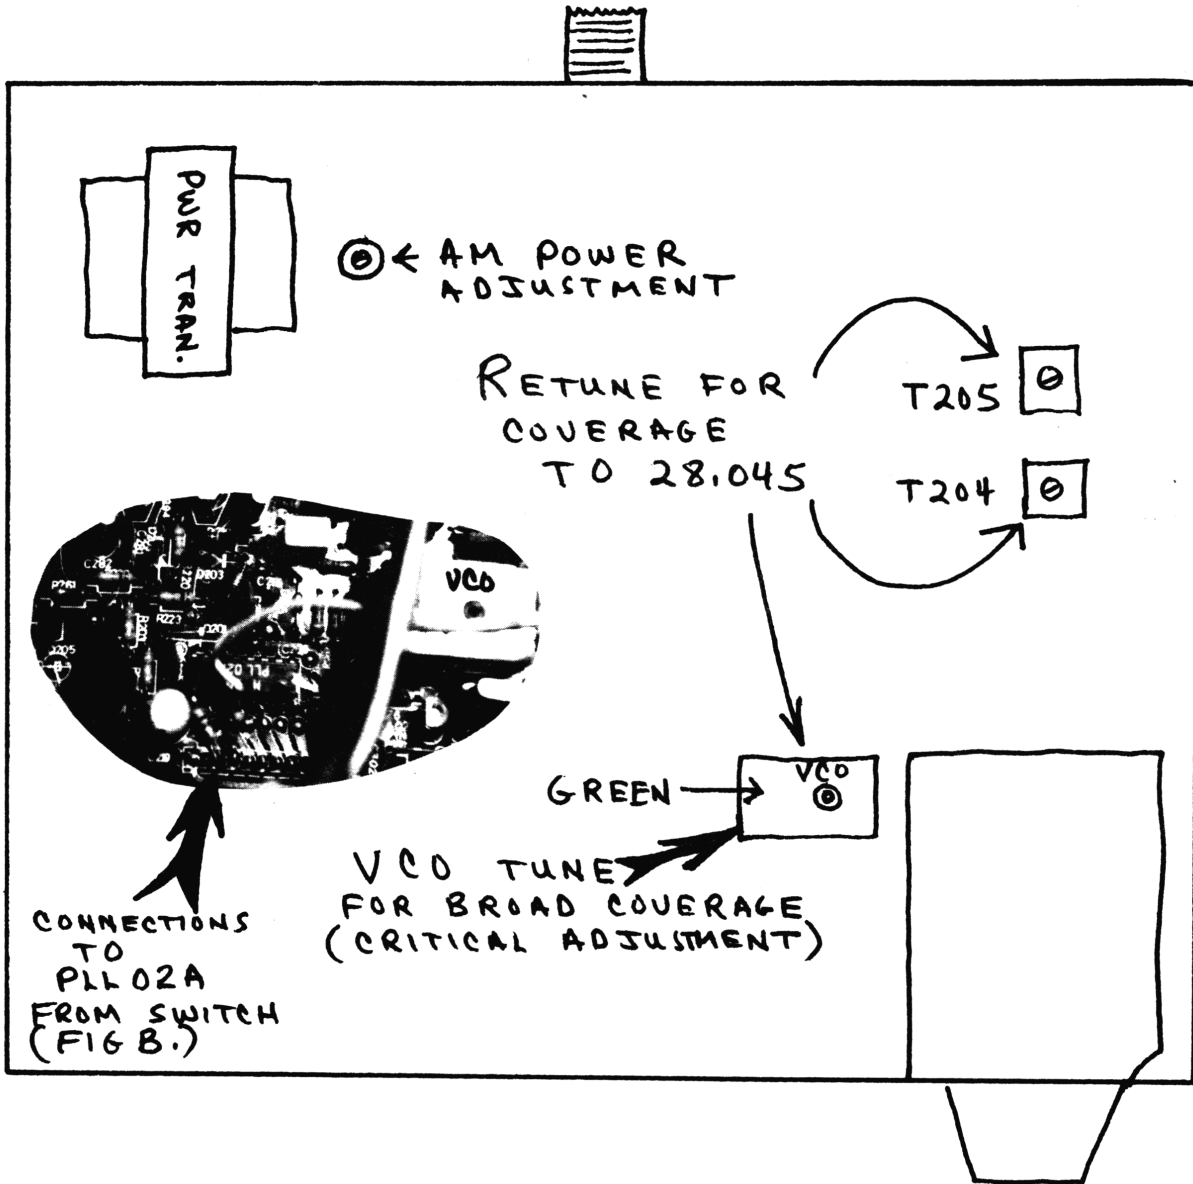 PWR TRAN.
AM POWER
ADJUSTMENT
RETUNE FOR
COVERAGE
TO 28.045
T205
T204
VCO
C282
D203
R223
PLL 02
VCO
GREEN
VCO TUNE
FOR BROAD COVERAGE
(CRITICAL ADJUSTMENT)
CONNECTIONS
TO
PLL02A
FROM SWITCH
(FIG B.)